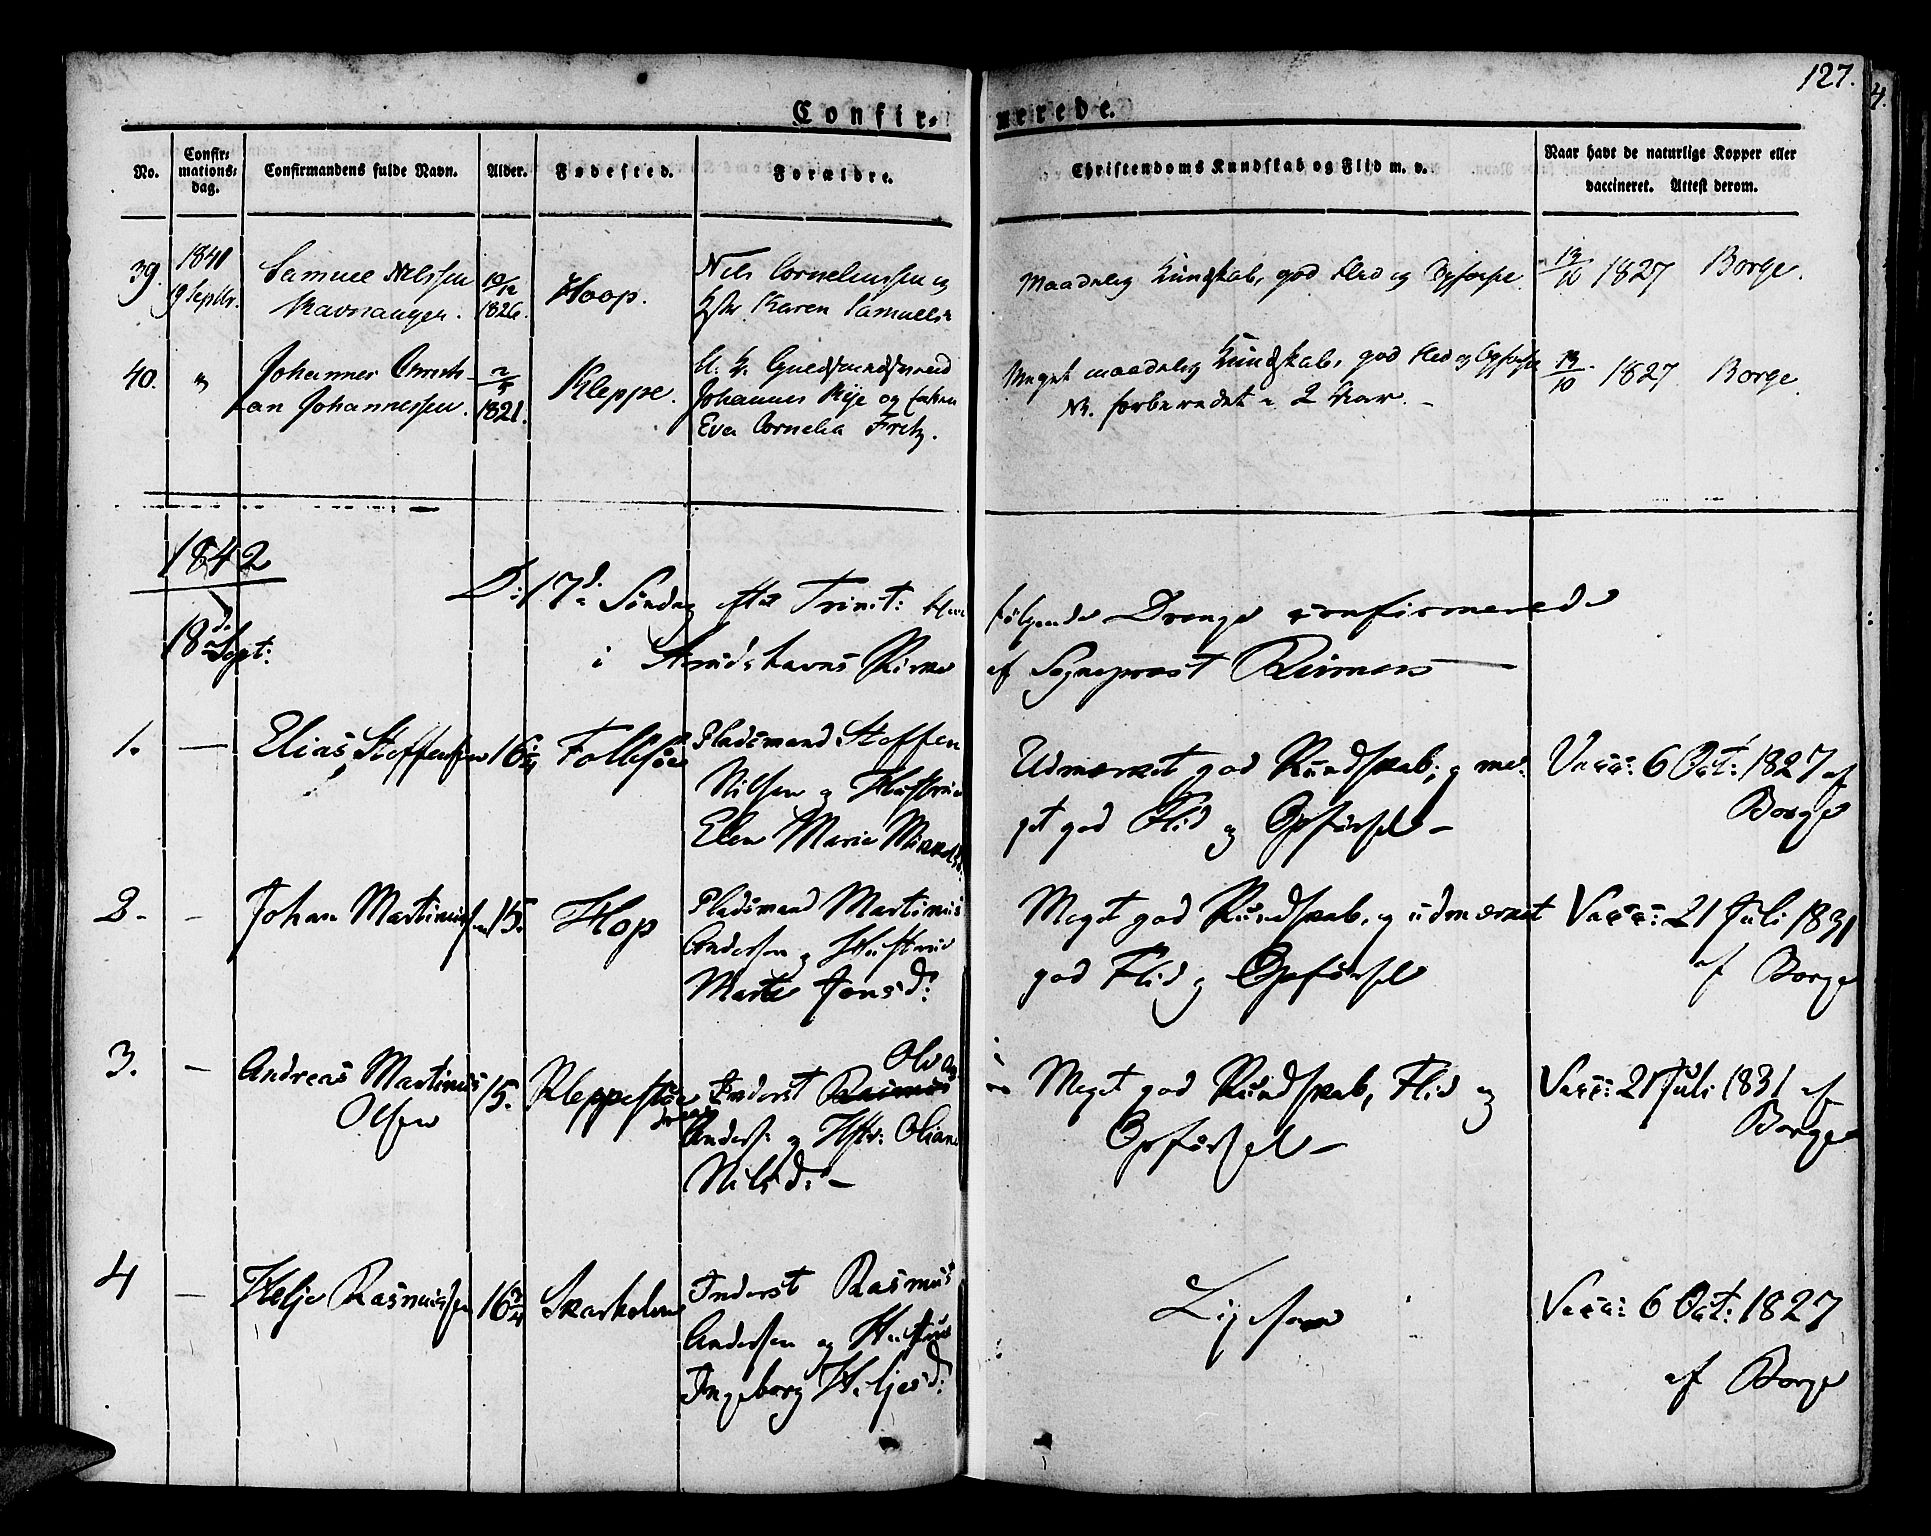 127.
4.
Confir- merede.
No.
Confir-
mations-
dag.
Confirmandens fulde Navn.
Alder.
Fødested.
Forældre.
Christendoms Kundskab og Flid m. v.
Naar havt de naturlige Kopper eller
vaccineret. Attest derom.
39.
1841
19 Septbr.
Samuel Nilssen
Ravnanger.
1826.
Hoop.
Nils Corneliussen og
Karen Samuelsd
Maadelig Kundskab, god Flid og Opførsel
13/10 1827 Borge.
40.
"
Johannes Christi-
an Johannessen.
2/5
1821.
Kleppe.
Guldsmedsvend
Johannes Rije og
Eva Cornelia Fretz.
Meget maadelig Kundskab, god Flid og Opførsel
NB. forberedet i 2 Aar.
13/10 1827 Borge.
1842
18d Sept:
D: 17d Søndag efter Trinit: blev følgende Drenge confirmerede
i Strudshavns Kirke af Sogneprest Reimers
1. —
Elias Steffensen
16 1/4
Follesøe
Pladsmand Steffen
Nilsen og Hustrue
Elen Marie
Udmerket god Kundskab; og me-
get god Flid og Opførsel —
Vacc: 6 Oct: 1827 af
Borge
2. -
Johan Martinussen
15.
Hop
Pladsmand Martinus
Andersen og Hustrue
Marte Jonsd:
Meget god Kundskab, og udmerket
god Flid og Opførsel
Vacc: 21 Juli 1831
af Borge
3. -
Andreas Martinus
Olsen
15.
Kleppestøe
Ole
Inderst Rasmus
Anders: og Hstr: Oliane
Nilsd: —
Meget god Kundskab, Flid og
Opførsel —
Vacc: 21 Juli 1831 af
Borge
4 —
Helje Rasmussen
16 3/4
Skarholmen
Inderst Rasmus
Andersen og Hustrue
Ingeborg Heljesd:
Ligesom
Vacc: 6 Oct: 1827
af Borge